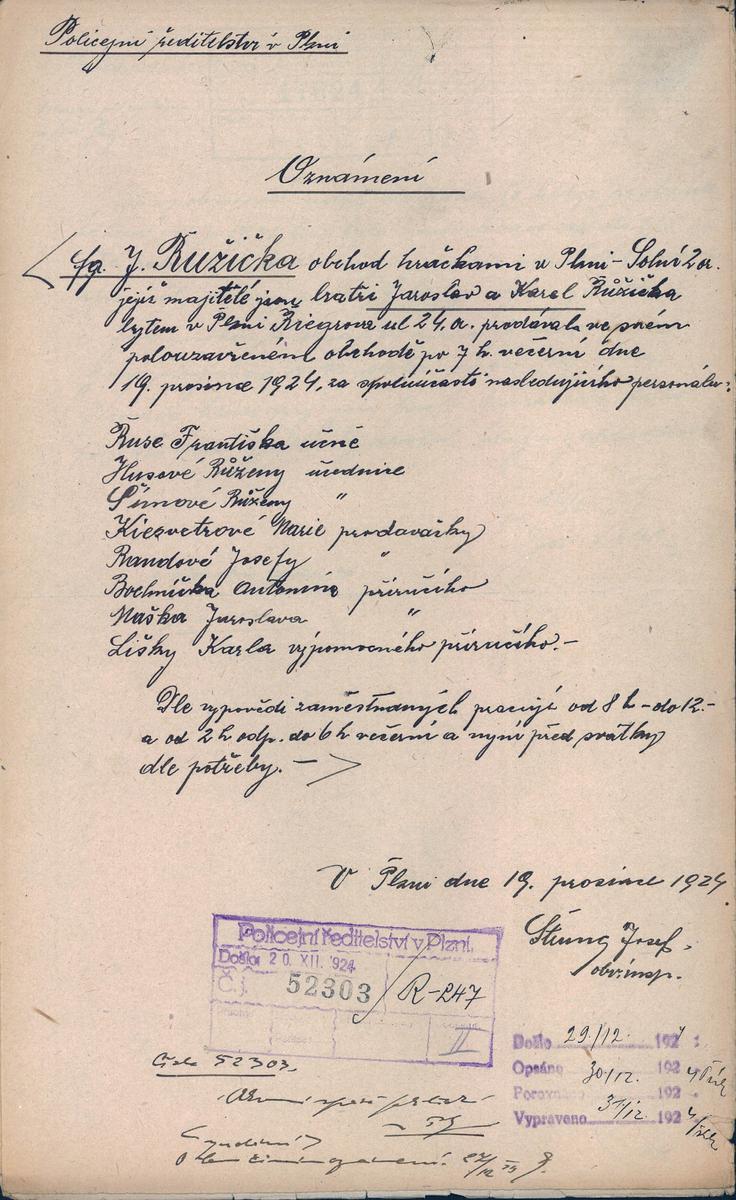 Policejní ředitelství v Plzni
Oznámení
fa. J. Růžička obchod hračkami v Plzni - Solní 2 a.
jejíž majitelé jsou bratři Jaroslav a Karel Růžička
bytem v Plzni Riegrova ul 24. a. prodávala ve svém
polouzavřeném obchodě po 7 h. večerní dne
19. prosince 1924, za spoluúčasti následujícího personálu:
Ruse Františka učně
Husové Růženy úřednice
Šímové Růženy "
Kiesvetrové Marie prodavačky
Randové Josefy "
Bochníčka Antonína příručího
Maška Jaroslava "
Lišky Karla výpomocného příručího.-
Dle výpovědi zaměstnaných pracují od 8 h - do 12.-
a od 2 h odp. do 6 h večerní a nyní před svátky
dle potřeby. -
V Plzni dne 19. prosince 1924
Josef,
obv. insp.
Policejní ředitelství v Plzni.
Došlo: 20. XII. 1924
Č. j. 52303 / R-247
II
Došlo 29./12. 1924
Opsáno 30/12. 1924
Porovnáno 31/12. 1924
Vypraveno 1924
Číslo 52303.